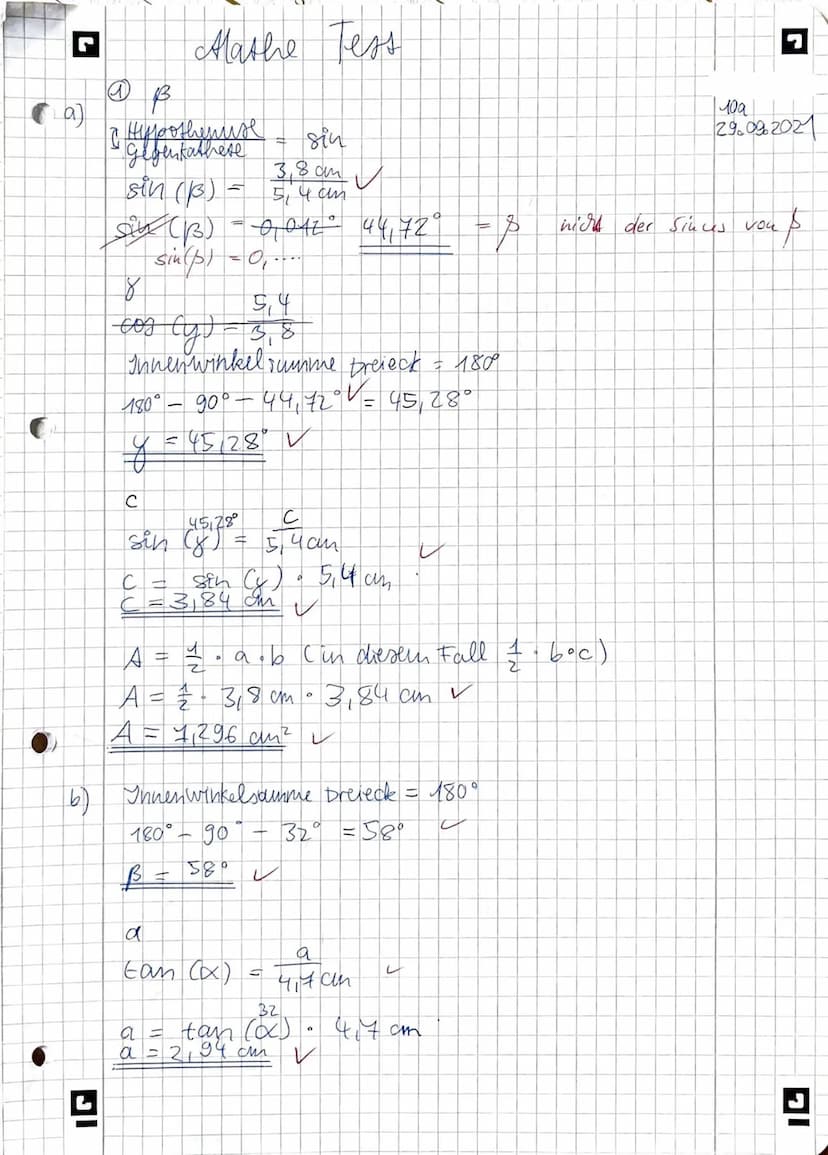 Mathe Test
① β
10a
a)
29.09.2021
Hyppothenuse
Gegenkathete = sin
sin (β) = 3,8 cm / 5,4 cm ✓
sin (β) = 0,012° 44,72° = β nicht der Sinus von β
sin(β) = 0, ....
γ
cos (y) = 5,4 / 3,8
Innenwinkelsumme Dreieck = 180°
180° - 90° - 44,72° ✓ = 45,28°
y = 45,28° ✓
c
45,28°
sin (γ) = c / 5,4 cm ✓
c = sin (y) · 5,4 cm
c = 3,84 cm ✓
A = 1/2 · a · b (in diesem Fall 1/2 · b · c)
A = 1/2 · 3,8 cm · 3,84 cm ✓
A = 7,296 cm² ✓
b) Innenwinkelsumme Dreieck = 180°
180° - 90° - 32° = 58° ✓
β = 58° ✓
a
tan (α) = a / 4,7 cm ✓
32
a = tan (α) · 4,7 cm
a = 2,94 cm ✓